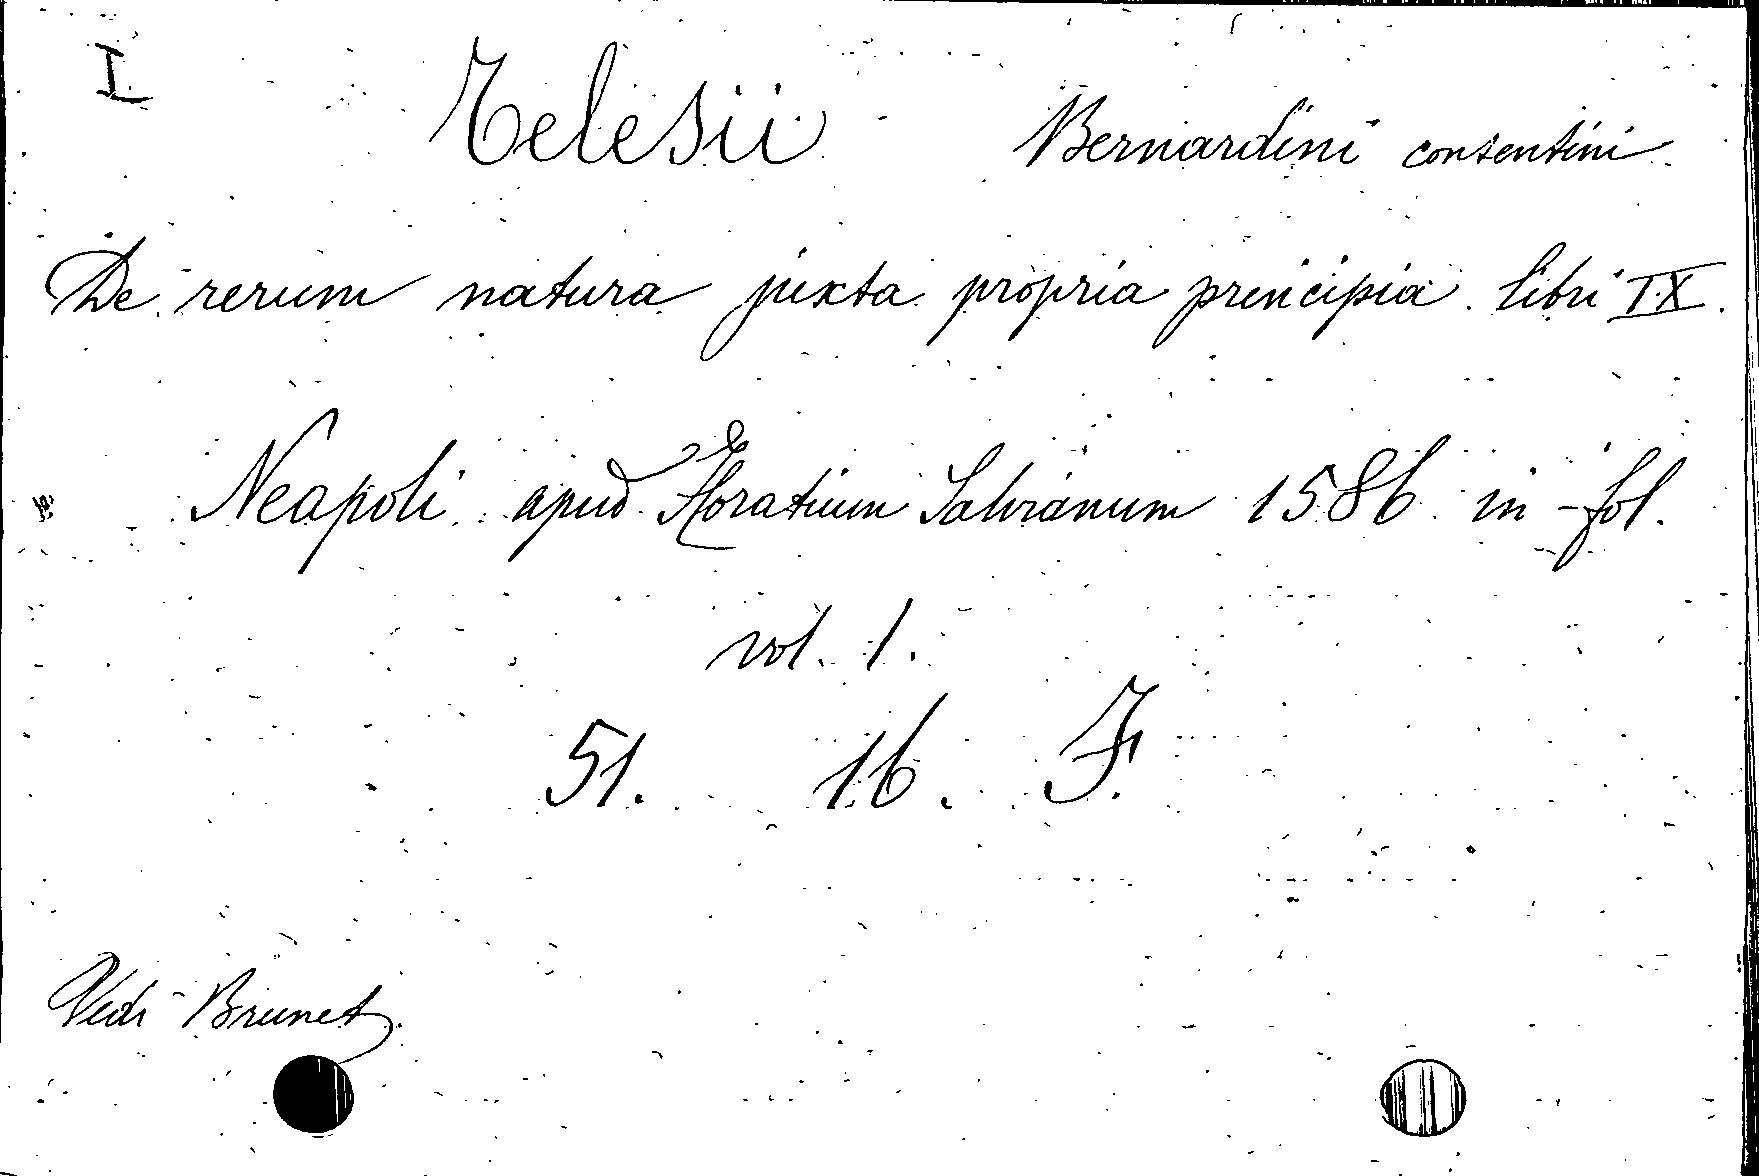 I
Telesii Bernardini consentini
De rerum natura juxta propria principia libri IX.
Neapoli apud Horatium Salvianum 1586 in-fol.
vol. 1.
51. 16. F.
Vedi Brunet